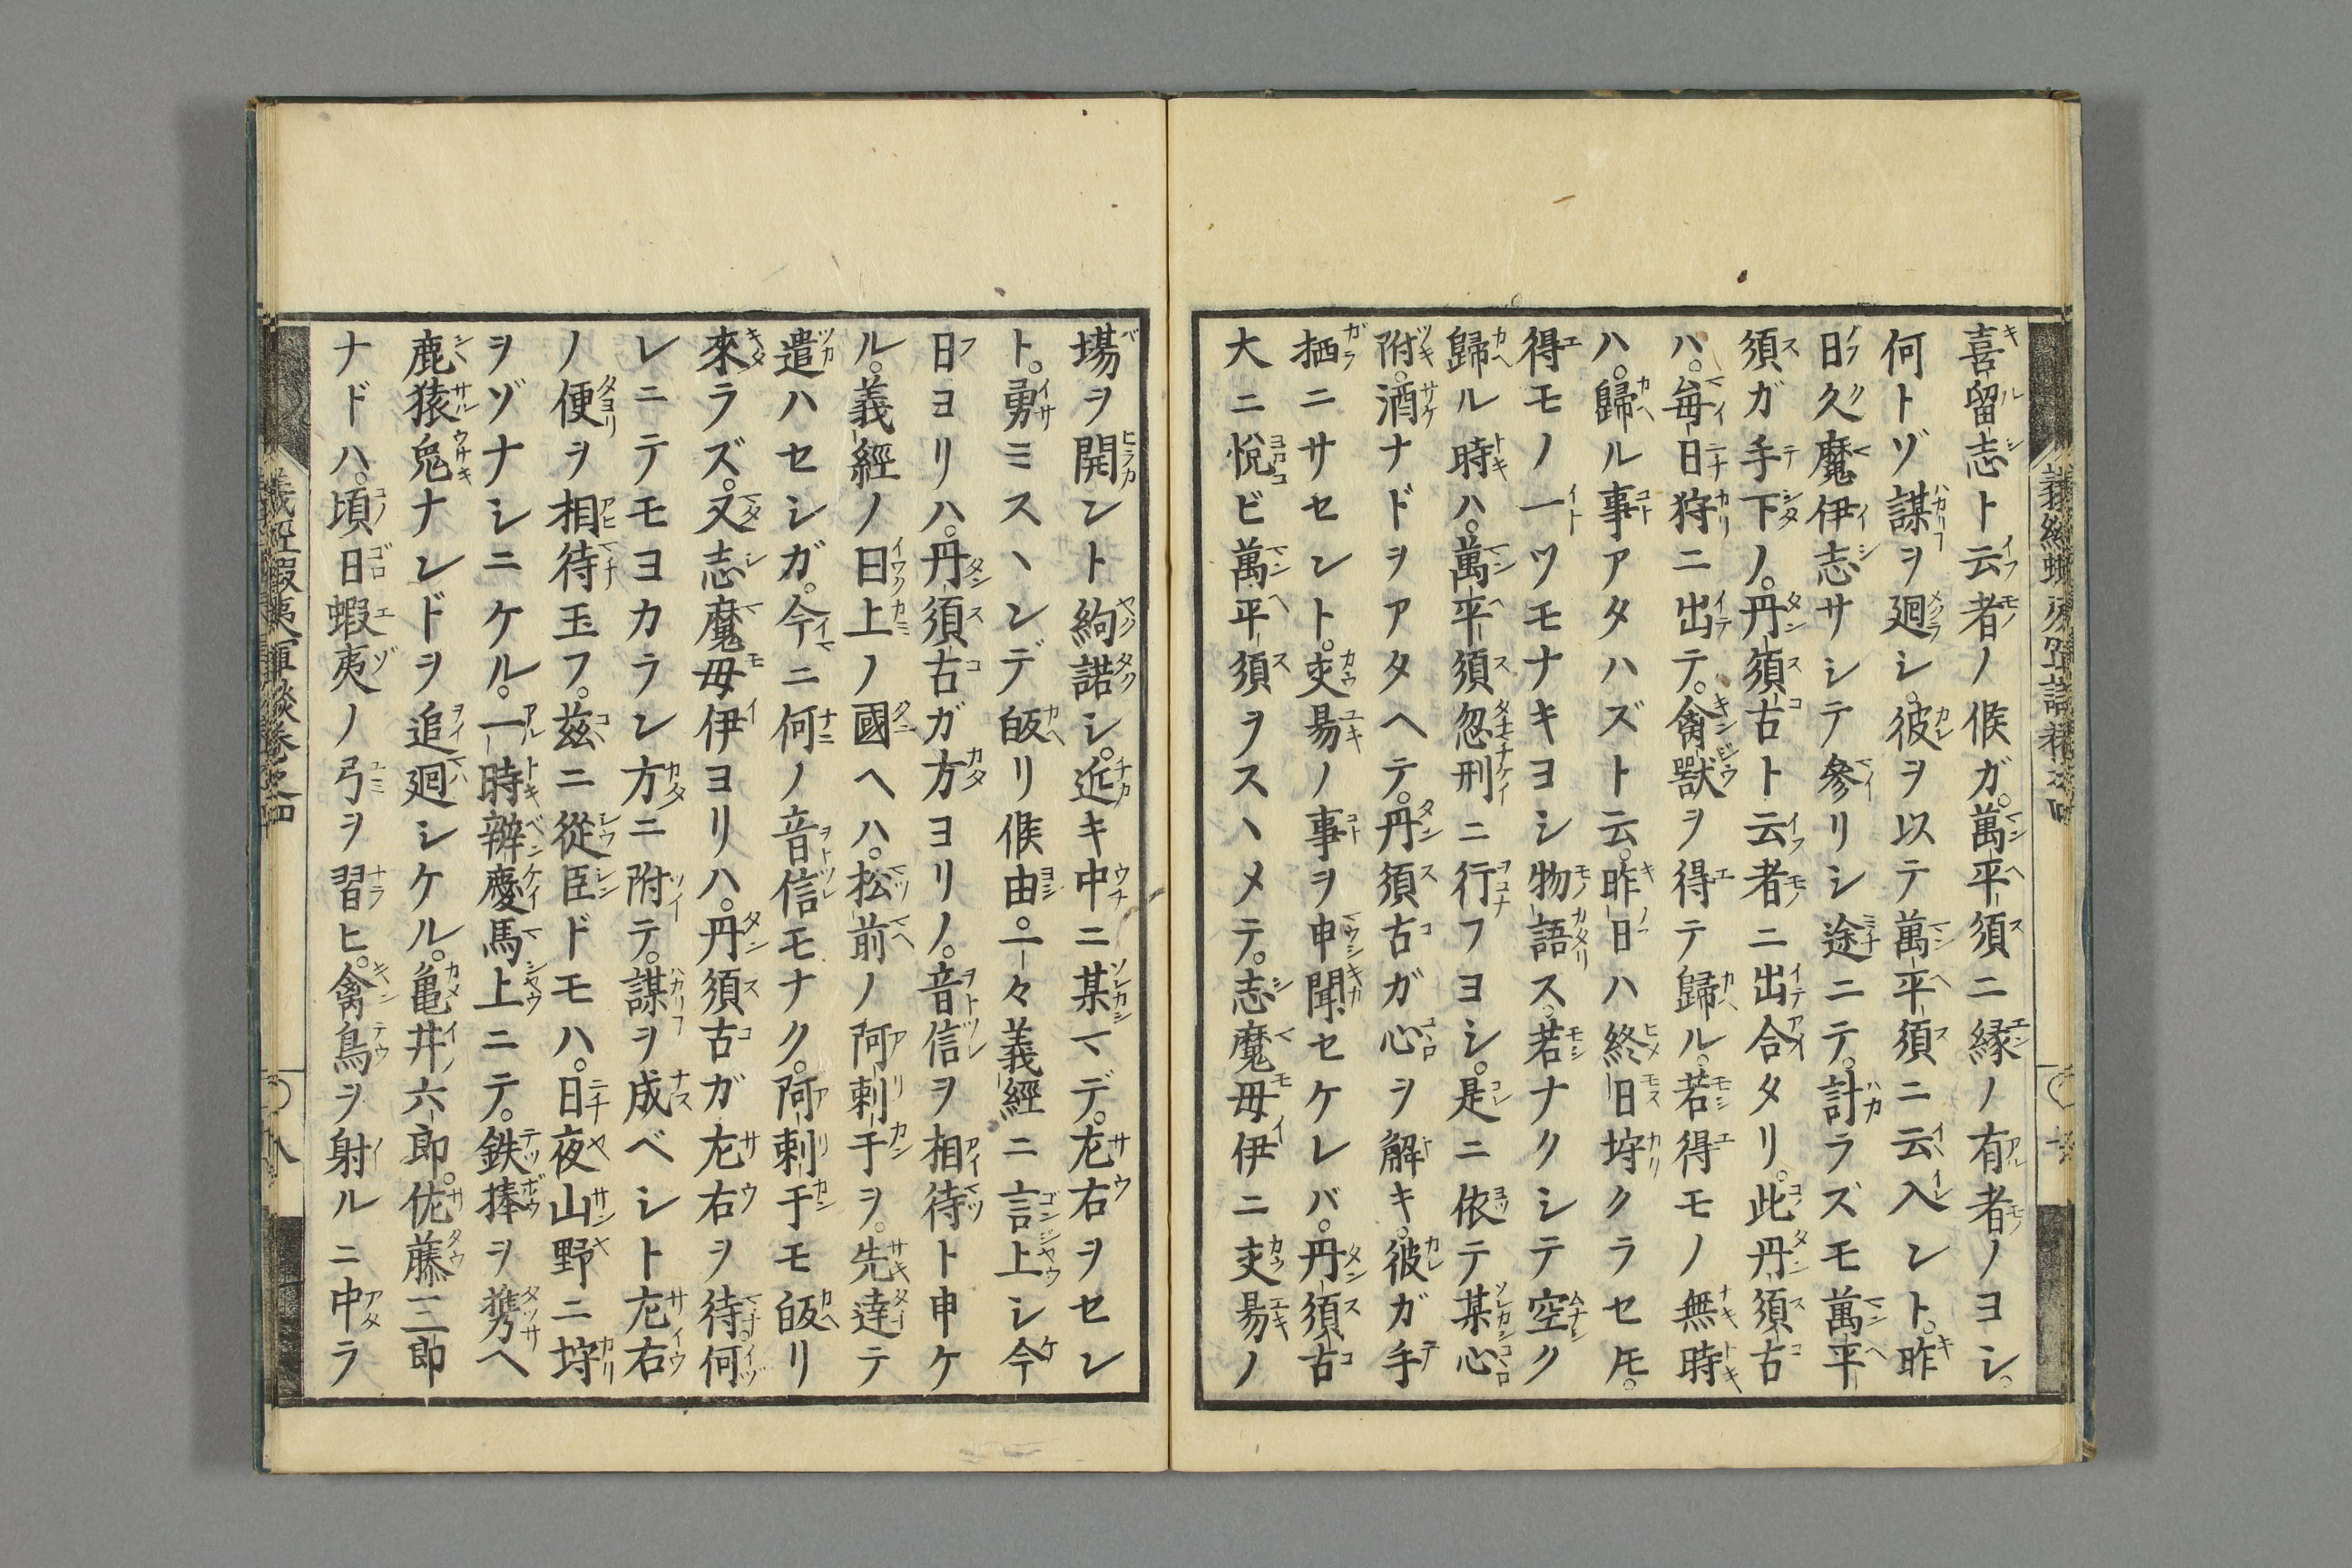 喜留志ト云者ノ候ガ。萬平須ニ縁ノ有者ノヨシ。
何トゾ謀ヲ廻シ。彼ヲ以テ萬平須ニ云入ント。昨
日久魔伊志サシテ參リシ途ニテ。計ラズモ萬平
須ガ手下ノ。丹須古ト云者ニ出合タリ。此丹須古
ハ。毎日狩ニ出テ。禽獸ヲ得テ歸ル。若得モノ無時
ハ。歸ル事アタハズト云。昨日ハ終日狩クラセ𪜈。
得モノ一ツモナキヨシ物語ス。若ナクシテ空ク
歸ル時ハ。萬平須忽刑ニ行フヨシ。是ニ依テ某心
附。酒ナドヲアタヘテ。丹須古ガ心ヲ解キ。彼ガ手
栖ニサセント。交易ノ事ヲ申聞セケレバ。丹須古
大ニ悅ビ萬平須ヲスヽメテ。志魔毋伊ニ交易ノ
塲ヲ開ント絇諾シ。近キ中ニ某マデ。左右ヲセン
ト。勇ミスヽンデ皈リ候由。一々義經ニ言上シ今
日ヨリハ。丹須古ガ方ヨリノ。音信ヲ相待ト申ケ
ル。義經ノ曰上ノ國ヘハ。松前ノ阿刺干ヲ。先達テ
遣ハセシガ。今ニ何ノ音信モナク。阿刺干モ皈リ
來ラズ。又志魔毋伊ヨリハ。丹須古ガ左右ヲ待。何
レニテモヨカラン方ニ附テ。謀ヲ成ベシト左右
ノ便ヲ相待玉フ。茲ニ從臣ドモハ。日夜山野ニ狩
ヲゾナシニケル。一時辨慶馬上ニテ。鉄捧ヲ携ヘ
鹿猿兔ナンドヲ追廻シケル。亀井六郎。佐藤三郎
ナドハ。頃日蝦夷ノ弓ヲ習ヒ。禽鳥ヲ射ルニ中ラ
義經蝦夷軍談卷之四
八